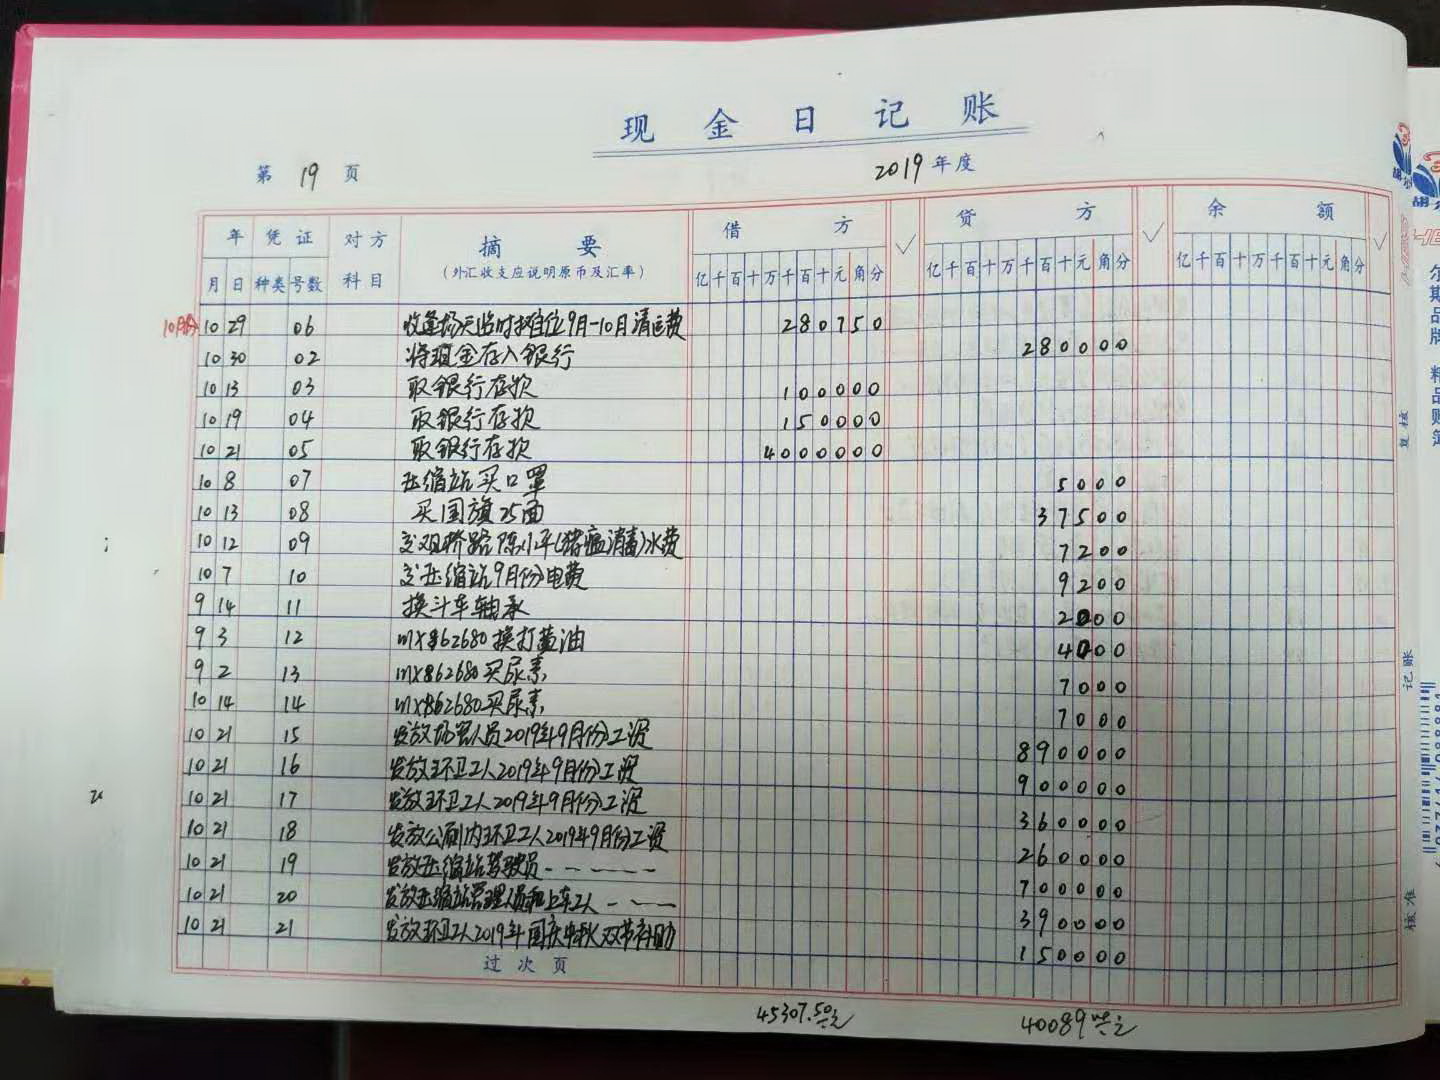 现金日记账
第 19 页
2019 年度
年 凭证 对方 摘要 借方 √ 贷方 √ 余额 √
月 日 种类 号数 科目 (外汇收支应说明原币及汇率) 亿千百十万千百十元角分 亿千百十万千百十元角分 亿千百十万千百十元角分
10月份 10 29 06 收逢场天临时摊位9月-10月清运费 280750
10 30 02 将现金存入银行 280000
10 13 03 取银行存款 100000
10 19 04 取银行存款 150000
10 21 05 取银行存款 4000000
10 8 07 压缩站买口罩 5000
10 13 08 买国旗25面 37500
10 12 09 交双桥路陈小平(猪瘟消毒)水费 7200
10 7 10 交压缩站9月份电费 9200
9 14 11 换斗车轴承 2000
9 3 12 m×862680换打黄油 4000
9 2 13 m×862680买尿素 7000
10 14 14 m×862680买尿素 7000
10 21 15 发放场容人员2019年9月份工资 890000
10 21 16 发放环卫工人2019年9月份工资 900000
10 21 17 发放环卫工人2019年9月份工资 360000
10 21 18 发放公厕内环卫工人2019年9月份工资 260000
10 21 19 发放压缩站驾驶员- - - - - - 700000
10 21 20 发放压缩站管理人员和上车工人- - - 390000
10 21 21 发放环卫工人2019年国庆中秋双节补助 150000
过次页
45307.50元
40089
复核
记账
核准
精品账簿